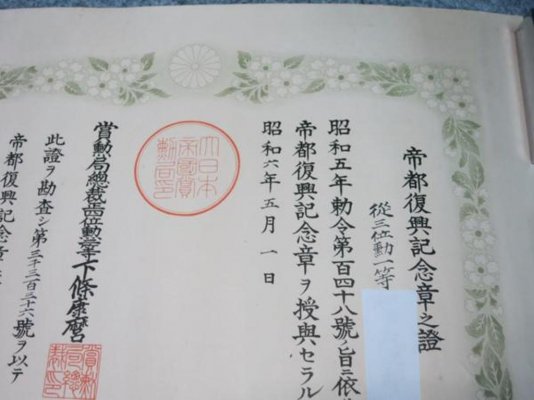 帝都復興記念章之證
從三位勳一等
昭和五年勅令第百四十八號ノ旨ニ依
帝都復興記念章ヲ授與セラル
昭和六年五月一日
大日本
賞勳局總裁 下條康麿
此證ヲ勘査シ第三千三百三十六號ヲ以テ
帝都復興記念章